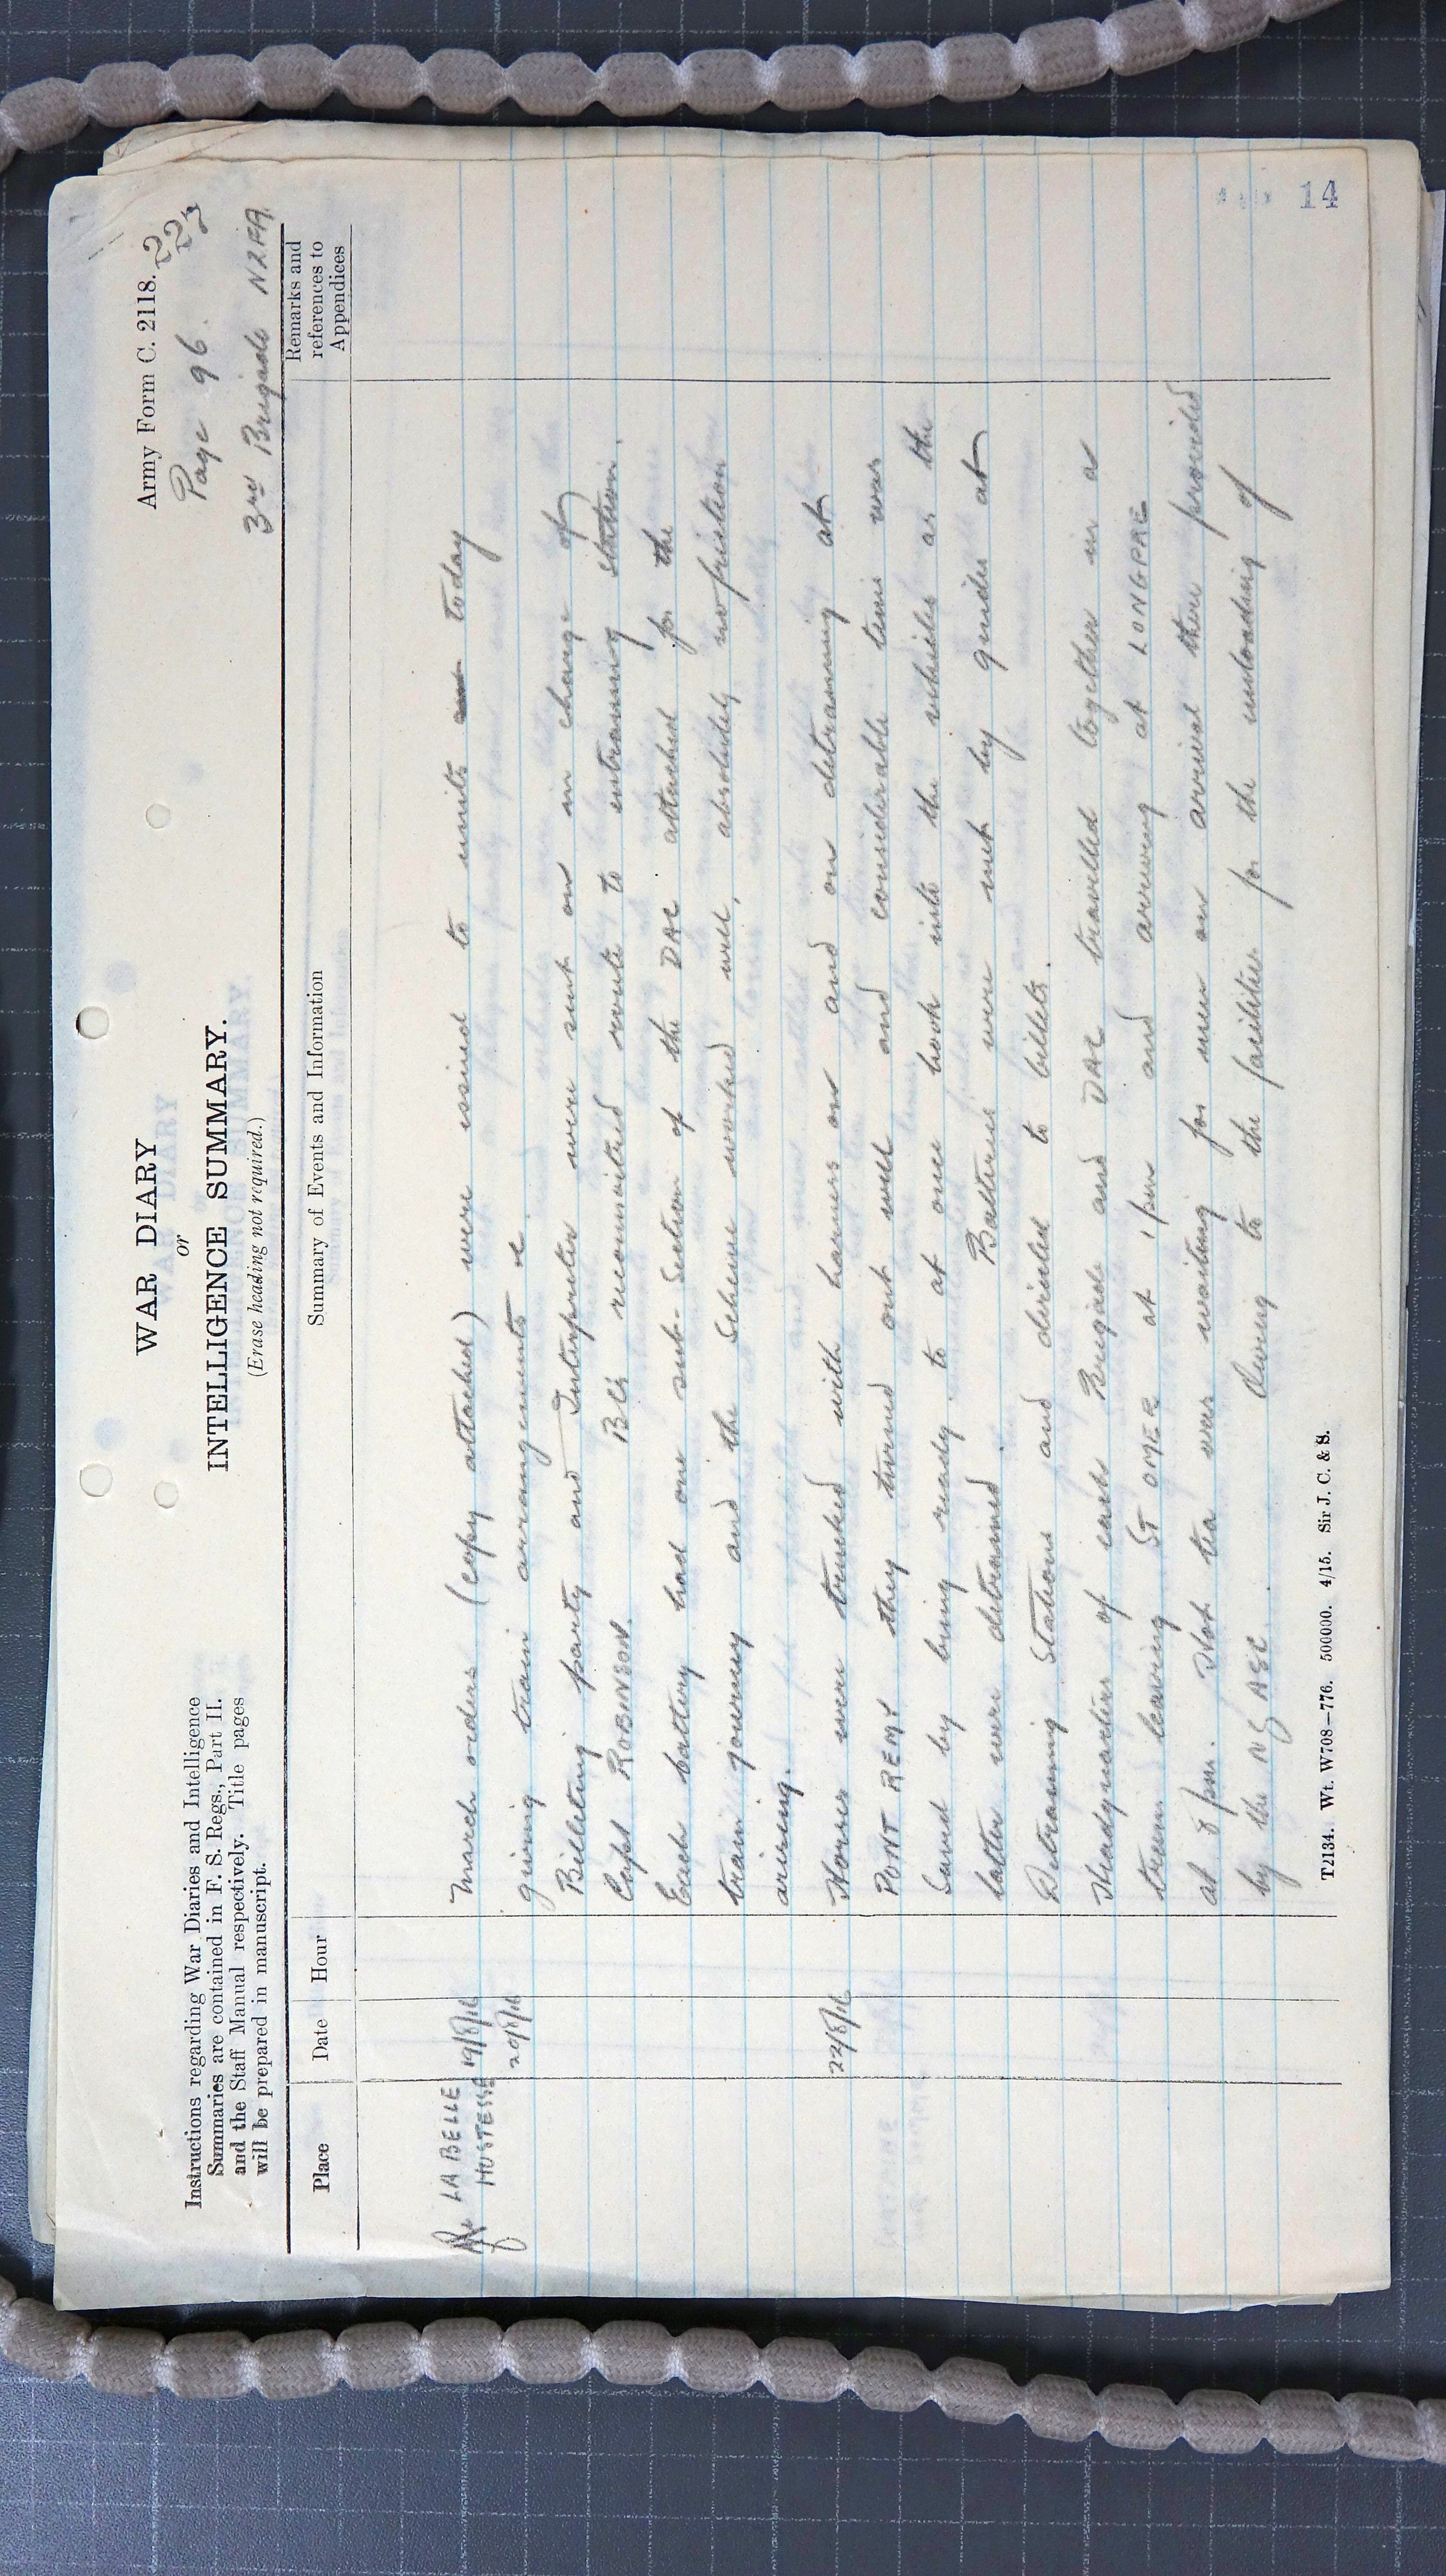 Army Form C. 2118.
WAR DIARY
or
INTELLIGENCE SUMMARY.
(Erase heading not required.)
Instructions regarding War Diaries and Intelligence
Summaries are contained in F. S. Regs., Part II.
and the Staff Manual respectively. Title pages
will be prepared in manuscript.
Page 96.
227
3rd Brigade NZFA.
Place
Date
Hour
Summary of Events and Information
Remarks and
references to
Appendices
LA BELLE 19/8/16 March orders (copy attached) were issued to units today
HOSTESSE 20/8/16 giving train arrangements
Billeting party and Interpreter were sent on in charge of
Capt ROBINSON. reconnoitred route to entraining station.
Each battery had one sub-Section of the DAC attached for the
train journey and the scheme worked well, absolutely no friction
arising.
22/8/16 Horses were trucked with harness on and on detraining at
PONT REMY they turned out well and considerable time was
saved by being ready to at once hook into the vehicles as the
latter were detrained. Batteries met by guides at
Detraining Stations and directed to billets.
Headquarters of each Brigade and DAC travelled together in a
train leaving ST OMER at 1 pm and arriving at LONGPRE
at 8 pm. Hot tea was waiting for men on arrival there provided
by the NZ ASC. Owing to the facilities for the unloading of
T2134. Wt. W708—776. 500000. 4/15. Sir J. C. & S.
14